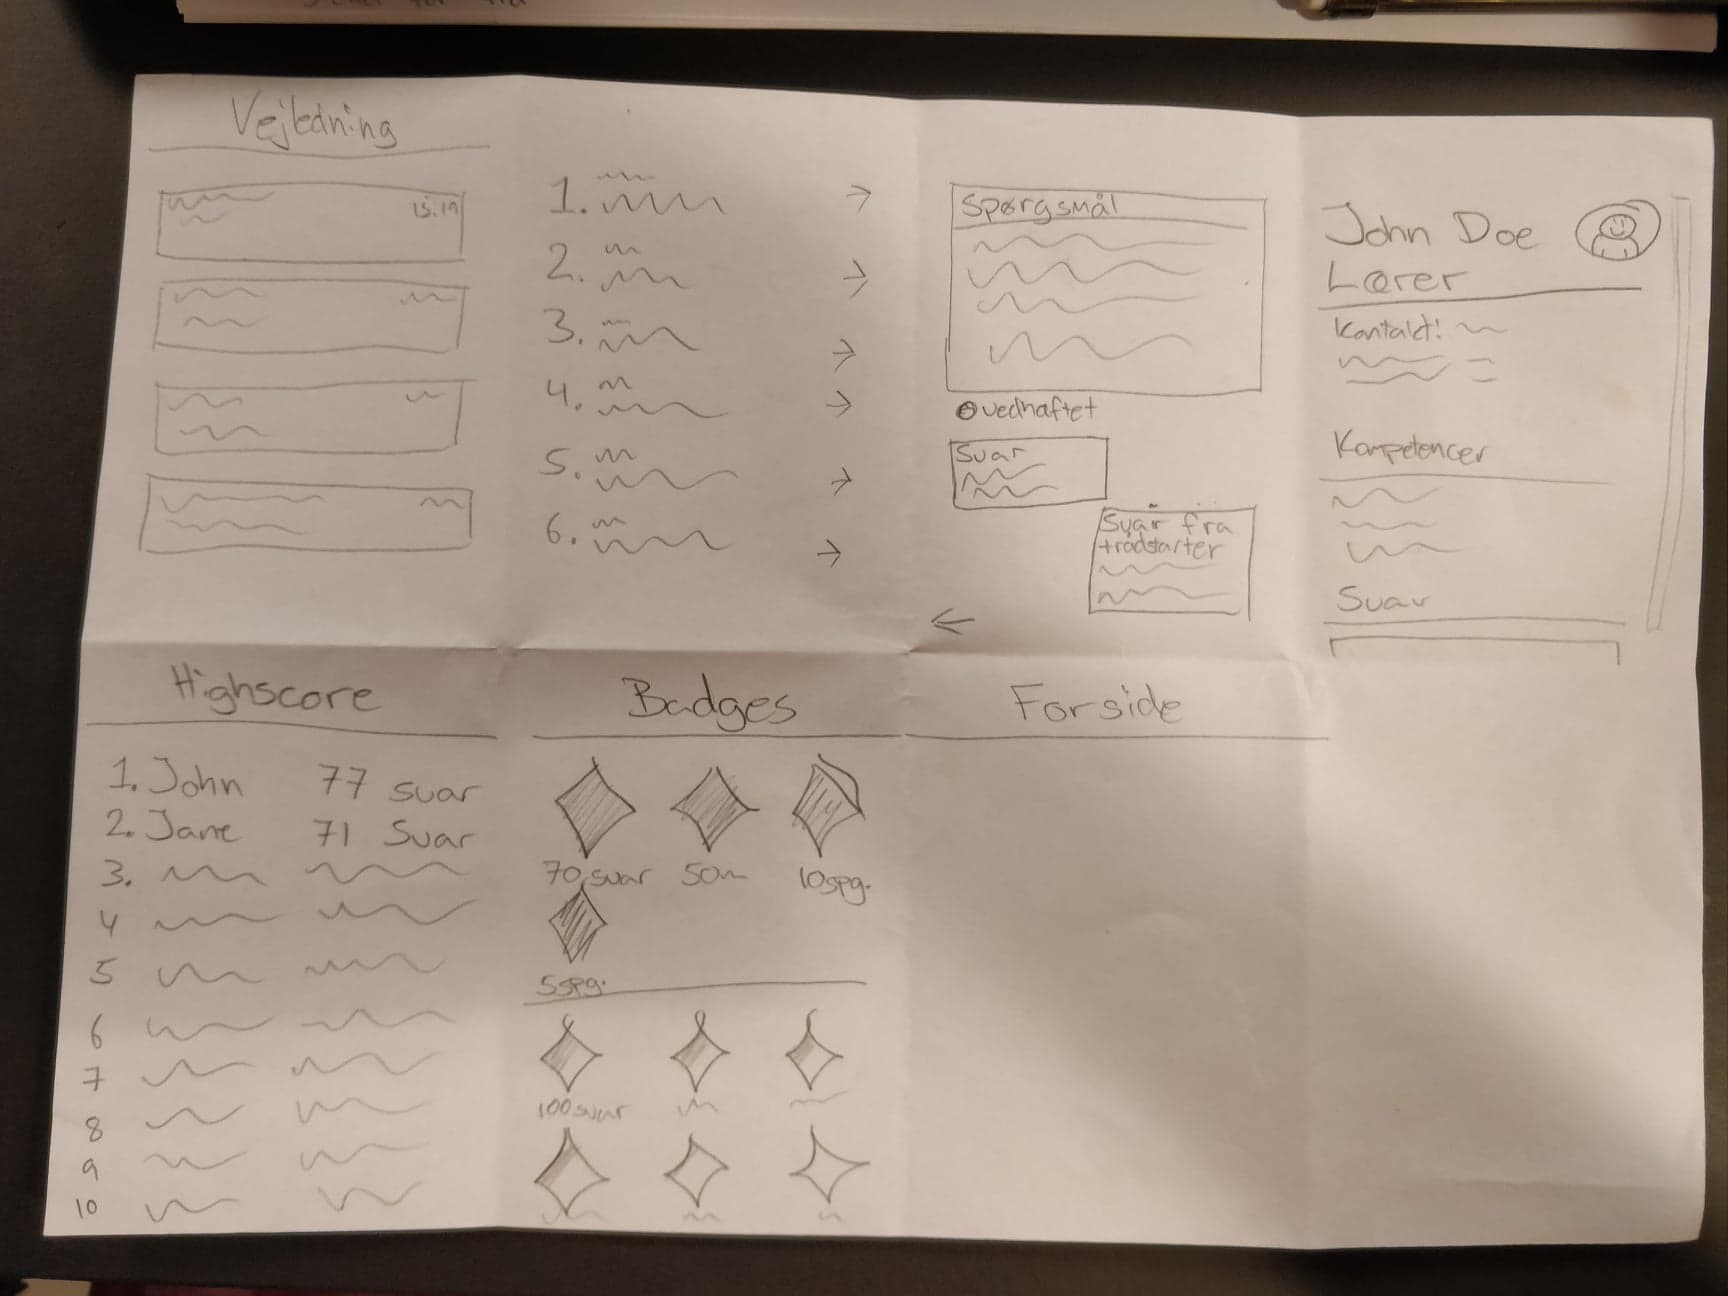 Vejledning
15.19
1.
2.
3.
4.
5.
6.
Spørgsmål
vedhæftet
Svar
Svar fra
trådstarter
John Doe
Lærer
Kontakt:
Kompetencer
Svar
Highscore
1. John 77 svar
2. Jane 71 Svar
3.
4
5
6
7
8
9
10
Badges
70 svar 50 10 spg.
5 spg.
100 svar
Forside